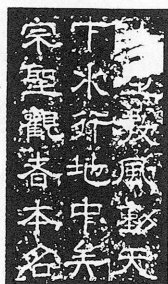 教風動天
下水行地中矣
宗聖觀者本名